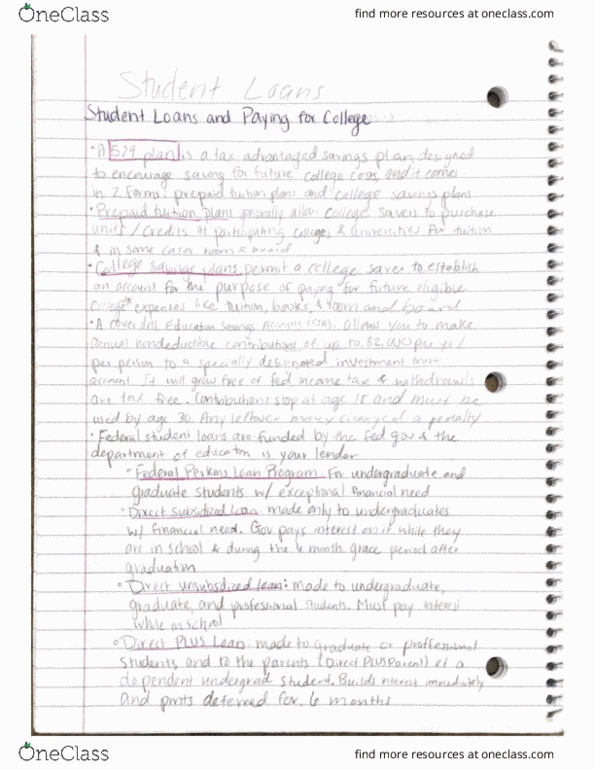 OneClass
find more resources at oneclass.com
Student Loans
Student Loans and Paying for College
• A 529 plan is a tax advantaged savings plan designed
to encourage saving for future college costs, and it comes
in 2 forms: prepaid tuition plans and college savings plans
• Prepaid tuition plans generally allow college savers to purchase
units/credits at participating colleges & universities for tuition
& in some cases room & board
• College savings plans permit a college saver to establish
an account for the purpose of paying for future eligible
college expenses like tuition, books, & room and board
• A coverdell Education Savings Account (ESA). allows you to make
annual nondeductible contributions of up to $2,000 per yr/
per person to a specially designated investment trust
account. It will grow free of fed income tax & withdrawls
are tax free. Contributions stop at age 18 and must be
used by age 30. Any leftover money a penalty
• Federal student loans are funded by the fed gov & the
department of education is your lender
• Federal Perkins Loan Program. For undergraduate and
graduate students w/ exceptional financial need
• Direct subsidized loan: made only to undergraduates
w/ financial need. Gov pays interest on it while they
are in school & during the 6 month grace period after
graduation
• Direct unsubsidized loan: made to undergraduate,
graduate, and professional students. Must pay interest
while in school
• Direct PLUS Loan: made to graduate or proffessional
students and to the parents (Direct PLUS Parent) of a
dependent undergrad student. Builds interest immediately
and pmts deferred for 6 months
OneClass
find more resources at oneclass.com